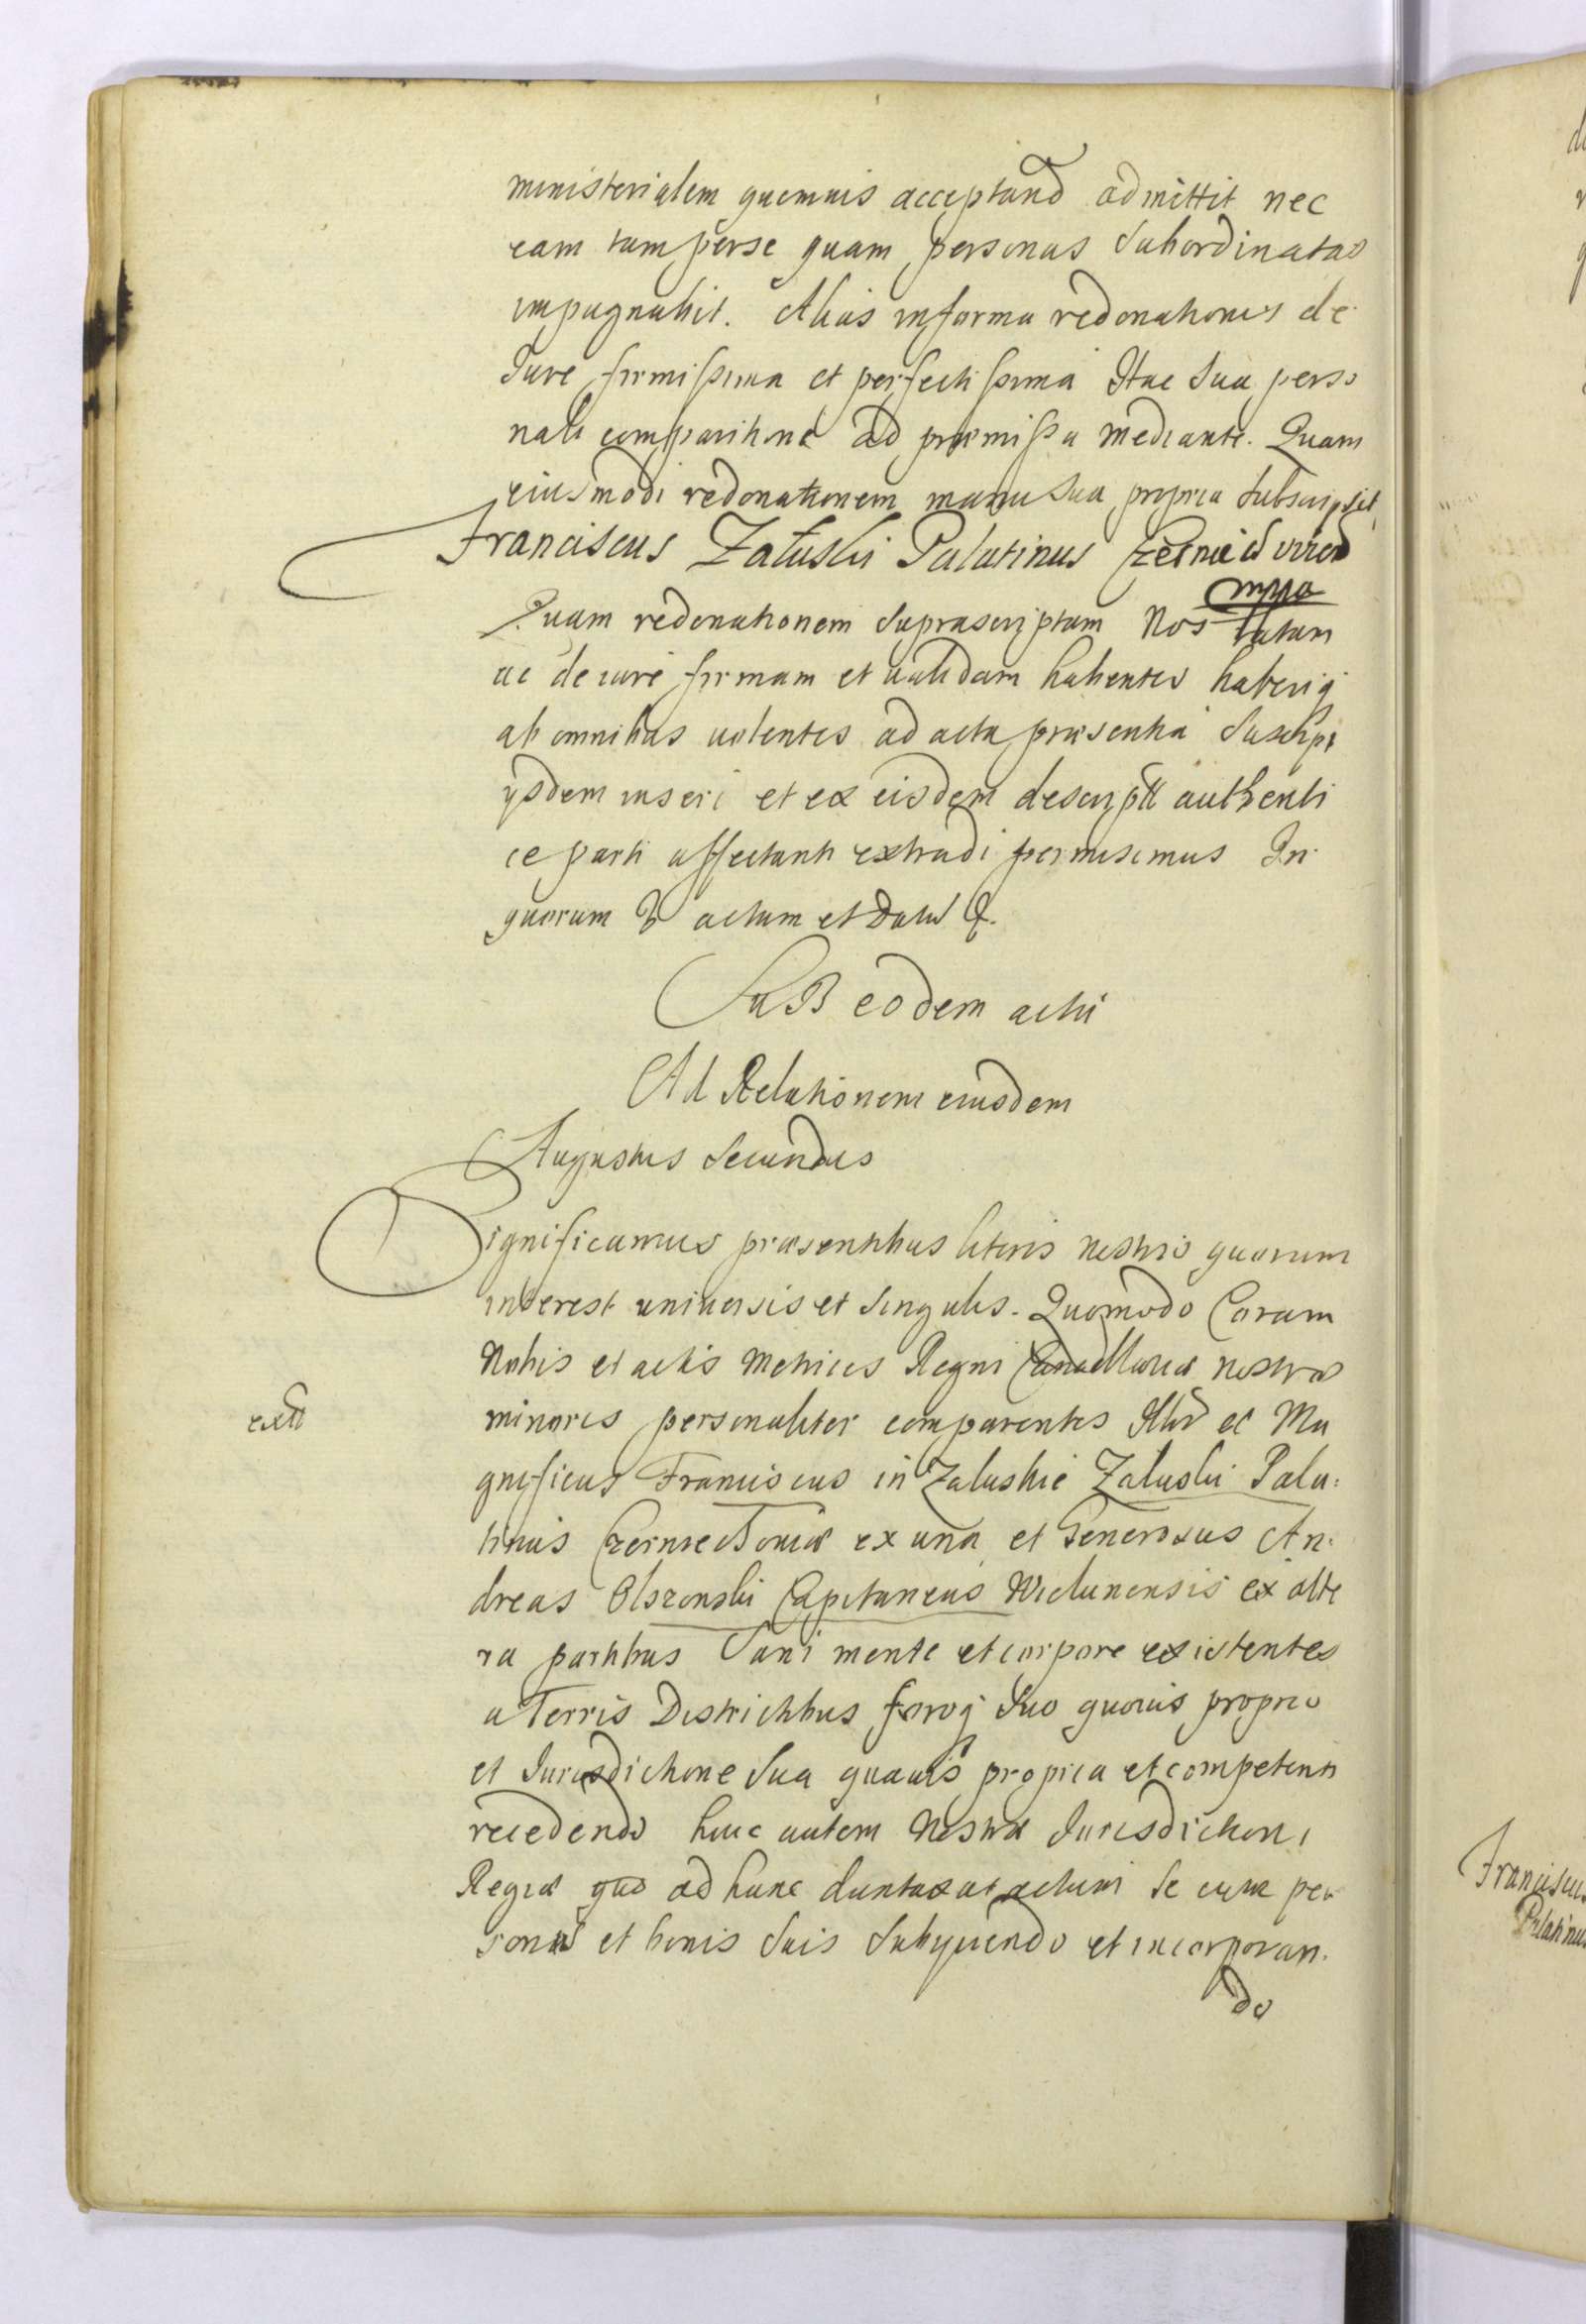 ministerialem quemvis acceptand admittit nec
eam tam per se quam personas Subordinatas
impugnabit. Alias in forma redonationis de
Jure firmissima et perfectissima Hac Sua perso
nali comparitione ad præmissa mediante. Quam
eiusmodi redonationem manu Sua propria Subscripsit
Franciscus Załuski Palatinus
mppa
Quam redonationem Suprascriptam Nos ratam
ac de iure firmam et validam habentes haberiq
ab omnibus volentes ad acta præsentia Suscipi
ijsdem inseri et ex eisdem descriptt authenti
ce parti affectanti extradi permisimus In
quorum & actum et Datu &.
Sub eodem actu
Ad Relationem eiusdem
Augustus Secundus
Significamus præsentibus literis nostris quorum
interest universis et Singulis. Quomodo Coram
Nobis et actis Metrices Regni Cancellariæ nostræ
minoris personaliter comparentes Illris et Ma
gnificus Franciscus in Zaluskie Zaluski Pala:
tinus Czerniechoviæ ex una et Generosus An.
dreas Olszonski Capitaneus Wielunensis ex alte
ra partibus Sani mente et corpore existentes
a Terris Districtibus foroq Suo quovis proprio
et Jurisdictione Sua quavis propria et competenti
recedendo huic autem Nostræ Jurisdictioni
Regiæ quo ad hunc duntaxat actum Se cum per
sonis et bonis Suis Subijciendo et incorporan.
do
extt
Franciscus
Palatinus